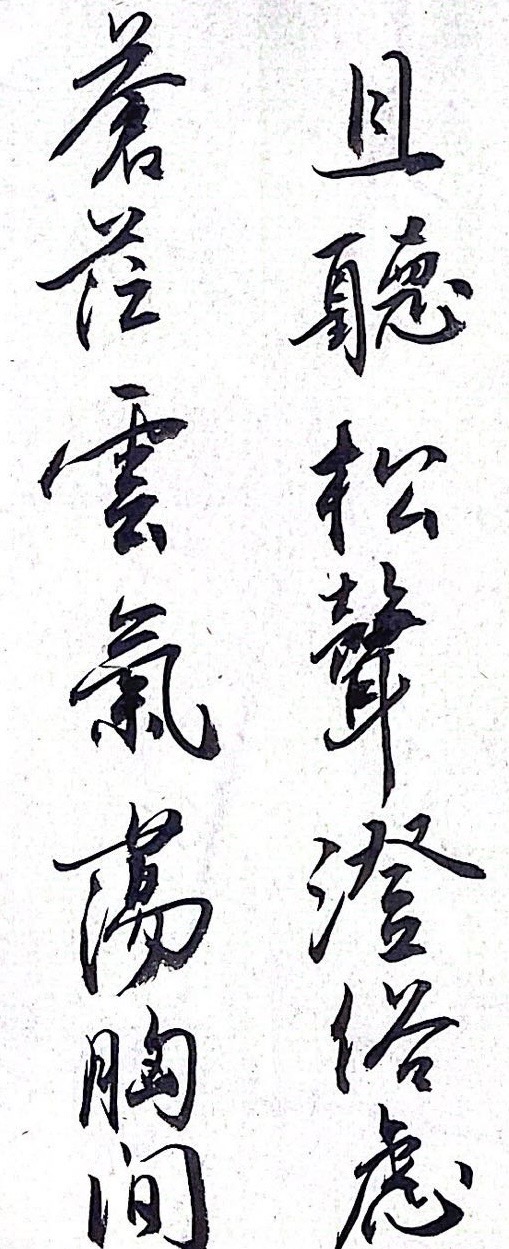 且聽松聲澄俗慮
蒼茫雲氣蕩胸间